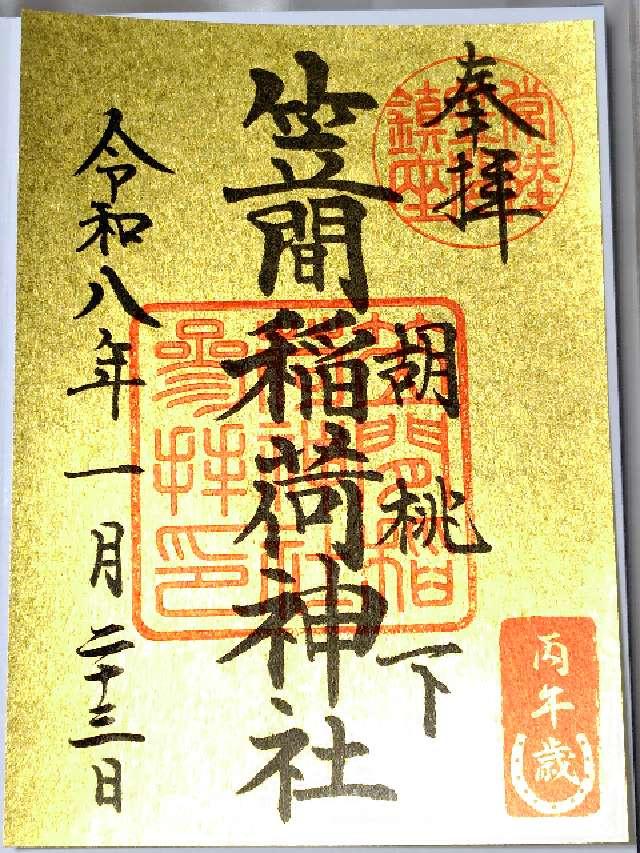 奉拝
常陸
鎮座
胡桃下
笠間稲荷神社
笠間稲
参拝印
令和八年一月二十三日
丙午歳